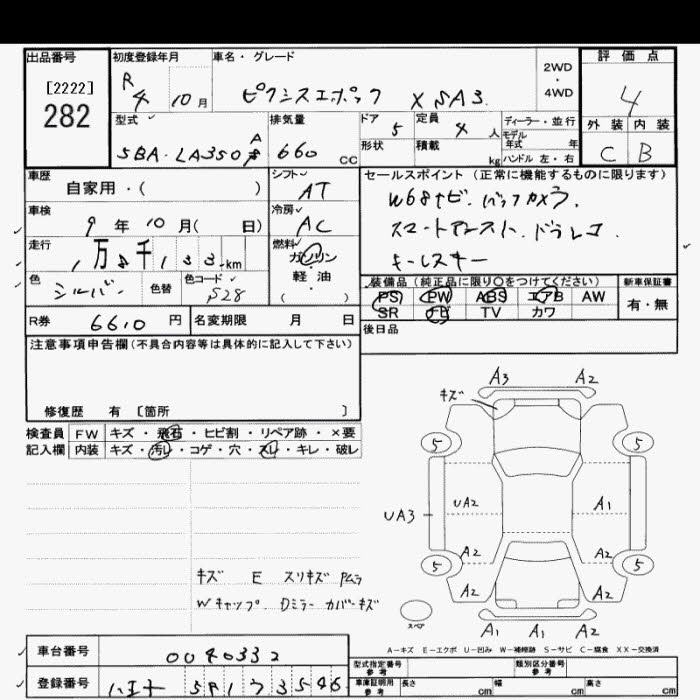 出品番号
[2222]
282
初度登録年月
R 4 10 月
車名・グレード
ピクシスエポック X SA3
2WD
・
4WD
評価点
4
外装 内装
C B
型式
5BA-LA350
排気量
660 CC
ドア 5
定員 4 人
形状
積載 kg
ディーラー・並行
モデル
年式 年
ハンドル 左・右
車歴
自家用・( )
シフト
AT
車検
9 年 10 月( 日)
冷房
AC
走行
1 万 8 千 1 3 3 km
燃料
ガソリン
軽・油
( )
色
シルバー
色替
色コード
S28
R券 6610 円
名変期限 月 日
セールスポイント (正常に機能するものに限ります)
W68ナビ. バックカメラ.
スマートアシスト. ドラレコ
キーレスキー
装備品 (純正品に限り○をつけてください)
PS PW ABS エアB AW
SR ナビ TV カワ
新車保証書
有・無
後日品
注意事項申告欄(不具合内容等は具体的に記入して下さい)
修復歴 有 〔箇所 〕
検査員 FW キズ・飛石・ヒビ割・リペア跡・×要
記入欄 内装 キズ・汚れ・コゲ・穴・スレ・キレ・破レ
A3 A2
キズ
5 5
UA3 UA2 A1
A2 A2
5 5
A2 A2
スペア
A1 A1 A2
キズ E スリキズ Pムラ
Wキャップ. Dミラー カバーキズ
A−キズ E−エクボ U−凹み W−補修跡 S−サビ C−腐食 XX−交換済
車台番号 0040332
登録番号
型式指定番号
参考
類別区分番号
参考
車庫証明用
参考
長さ cm 幅 cm 高さ cm